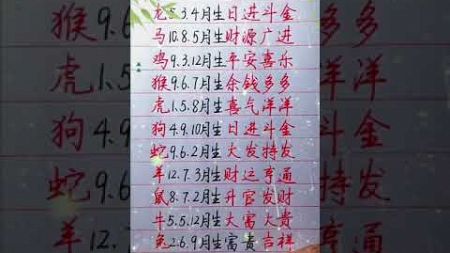 龙5.3.4月生日进斗金
马10.8.5月生财源广进
鸡9.3.12月生平安喜乐
猴9.6.7月生余钱多多
虎1.5.8月生喜气洋洋
狗4.9.10月生日进斗金
蛇9.6.2月生大发特发
羊12.7.3月生财运亨通
鼠8.7.2月生升官发财
牛5.5.12月生大富大贵
兔2.6.9月生富贵吉祥
猴9.6
虎1.5
狗4.9
蛇9.6
羊12.7
多多
洋洋
斗金
特发
亨通